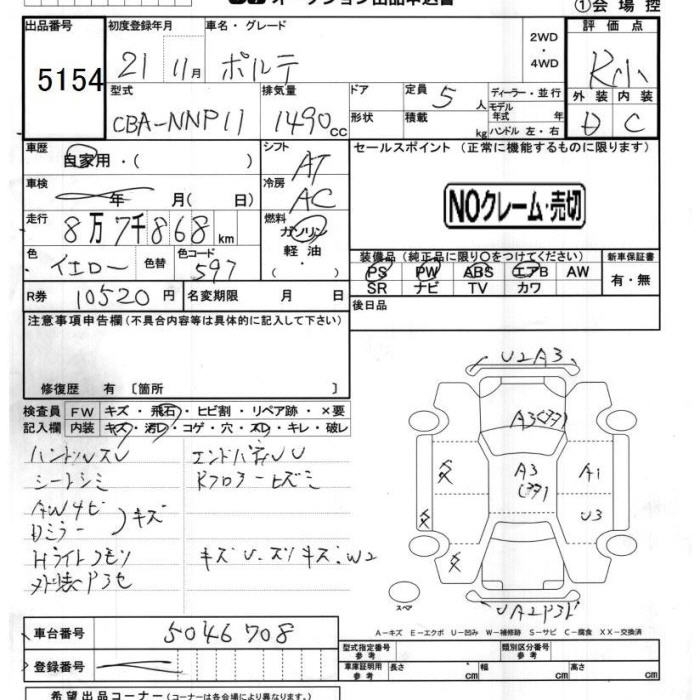 ①会場控
出品番号
5154
初度登録年月
21 11月
車名・グレード
ポルテ
2WD
・
4WD
評価点
外装 内装
D C
型式
CBA-NNP11
排気量
1490cc
ドア
形状
定員 5人
積載 kg
ディーラー・並行
モデル
年式 年
ハンドル 左・右
車歴
自家用・( )
シフト
AT
セールスポイント (正常に機能するものに限ります)
車検
年 月( 日)
冷房
AC
NOクレーム・売切
走行
8万7千868km
燃料
ガソリン
軽油
・( )
色
イエロー
色替
色コード
597
装備品(純正品に限り○をつけてください)
PS PW ABS エアB AW
SR ナビ TV カワ
新車保証書
有・無
R券 10520円
名変期限 月 日
後日品
注意事項申告欄(不具合内容等は具体的に記入して下さい)
修復歴 有 〔箇所 〕
検査員 FW キズ・飛石・ヒビ割・リペア跡・×要
記入欄 内装 キズ・汚レ・コゲ・穴・スレ・キレ・破レ
ハンドルスレ
シートシミ
AWサビ
Dミラー
キズ
Hライトクモリ
外装P3セ
Rフロアーヒズミ
U2A3
A3
A3
A1
U3
スペア
A−キズ E−エクボ U−凹み W−補修跡 S−サビ C−腐食 XX−交換済
車台番号
5046708
登録番号
型式指定番号
参考
類別区分番号
参考
車庫証明用
参考
長さ
幅
高さ
希望出品コーナー(コーナーは各会場により異なります。)